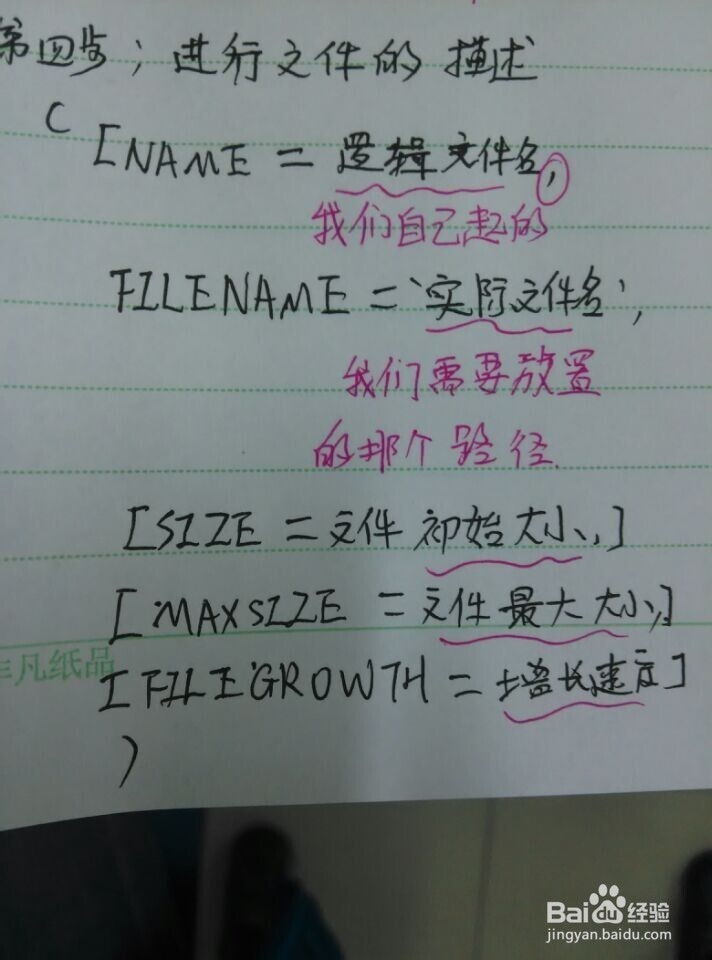 第四步；进行文件的描述
(
[NAME = 逻辑文件名,
我们自己起的
FILENAME = '实际文件名',
我们需要放置
的那个路径.
[SIZE = 文件初始大小,]
[MAXSIZE = 文件最大大小,]
非凡纸品
[FILEGROWTH = 增长速度]
)
Baidu经验
jingyan.baidu.com